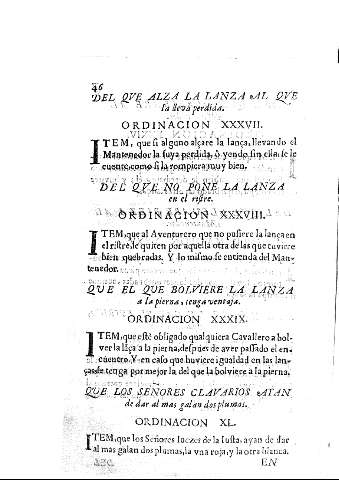 46
DEL QVE ALZA LA LANZA AL QVE
la lleva perdida.
ORDINACION XXXVII.
ITEM, que si alguno alçare la lança, llevando el
Mantenedor la suya perdida, ò yendo sin ella, se le
cuente como si la rompiera muy bien.
DEL QVE NO PONE LA LANZA
en el ristre.
ORDINACION XXXVIII.
ITEM, que al Aventurero que no pusiere la lança en
el ristre, le quiten por aquella otra de las que tuviere
bien quebradas. Y lo mismo se entienda del Man-
tenedor.
QUE EL QUE BOLVIERE LA LANZA
a la pierna, tenga ventaja.
ORDINACION XXXIX.
ITEM, que esté obligado qualquiera Cavallero a bol-
ver la lãça a la pierna, despues de aver passado el en-
cuentro. Y en caso que huviere igualdad en las lan-
ças se tenga por mejor la del que la bolviere a la pierna.
QUE LOS SEÑORES CLAVARIOS AYAN
de dar al mas galan dos plumas.
ORDINACION XL.
ITEM, que los Señores Iuezes de la Iusta, ayan de dar
al mas galan dos plumas, la vna roja, y la otra blanca.
EN